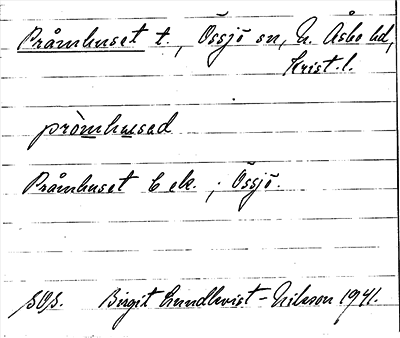 Pråmhuset t., Össjö sn, N. Åsbo hd,
Krist. l.
pròmhusad
Pråmhuset b ek. ; Össjö.
SOS. Birgit Lundkvist-Nilsson 1941.